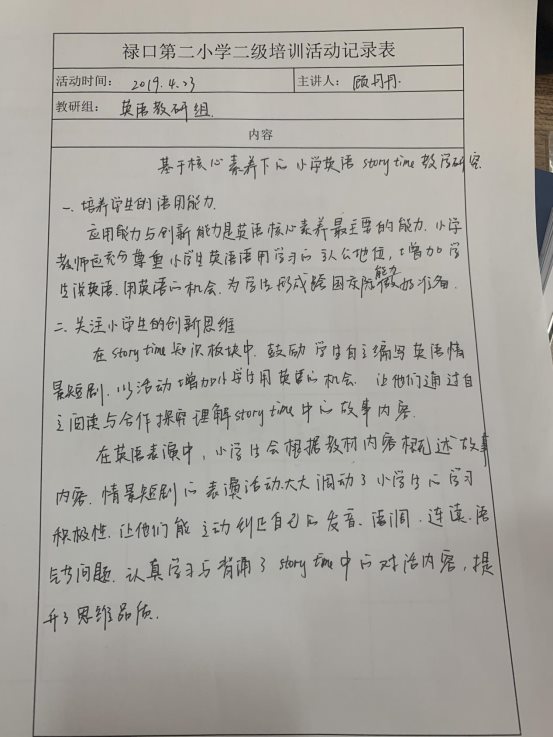 禄口第二小学二级培训活动记录表
活动时间： 2019.4.23 主讲人： 顾丹丹
教研组： 英语教研组
内容
基于核心素养下的小学英语 story time 教学研究
一、培养学生的语用能力
应用能力与创新能力是英语核心素养最主要的能力. 小学
教师应充分尊重小学生英语语用学习的主人公地位, 增加学
生说英语、用英语的机会. 为学生形成跨国交际能力做好准备.
二、关注小学生的创新思维
在 story time 知识板块中. 鼓励学生自主编写英语情
景短剧. 以活动增加小学生用英语的机会. 让他们通过自
主阅读与合作探究理解 story time 中的故事内容.
在英语表演中, 小学生会根据教材内容概述故事
内容. 情景短剧的表演活动大大调动了小学生的学习
积极性. 让他们能主动纠正自己的发音、语调、连读、语
气等问题. 认真学习与背诵了 story time 中的对话内容, 提
升了思维品质.